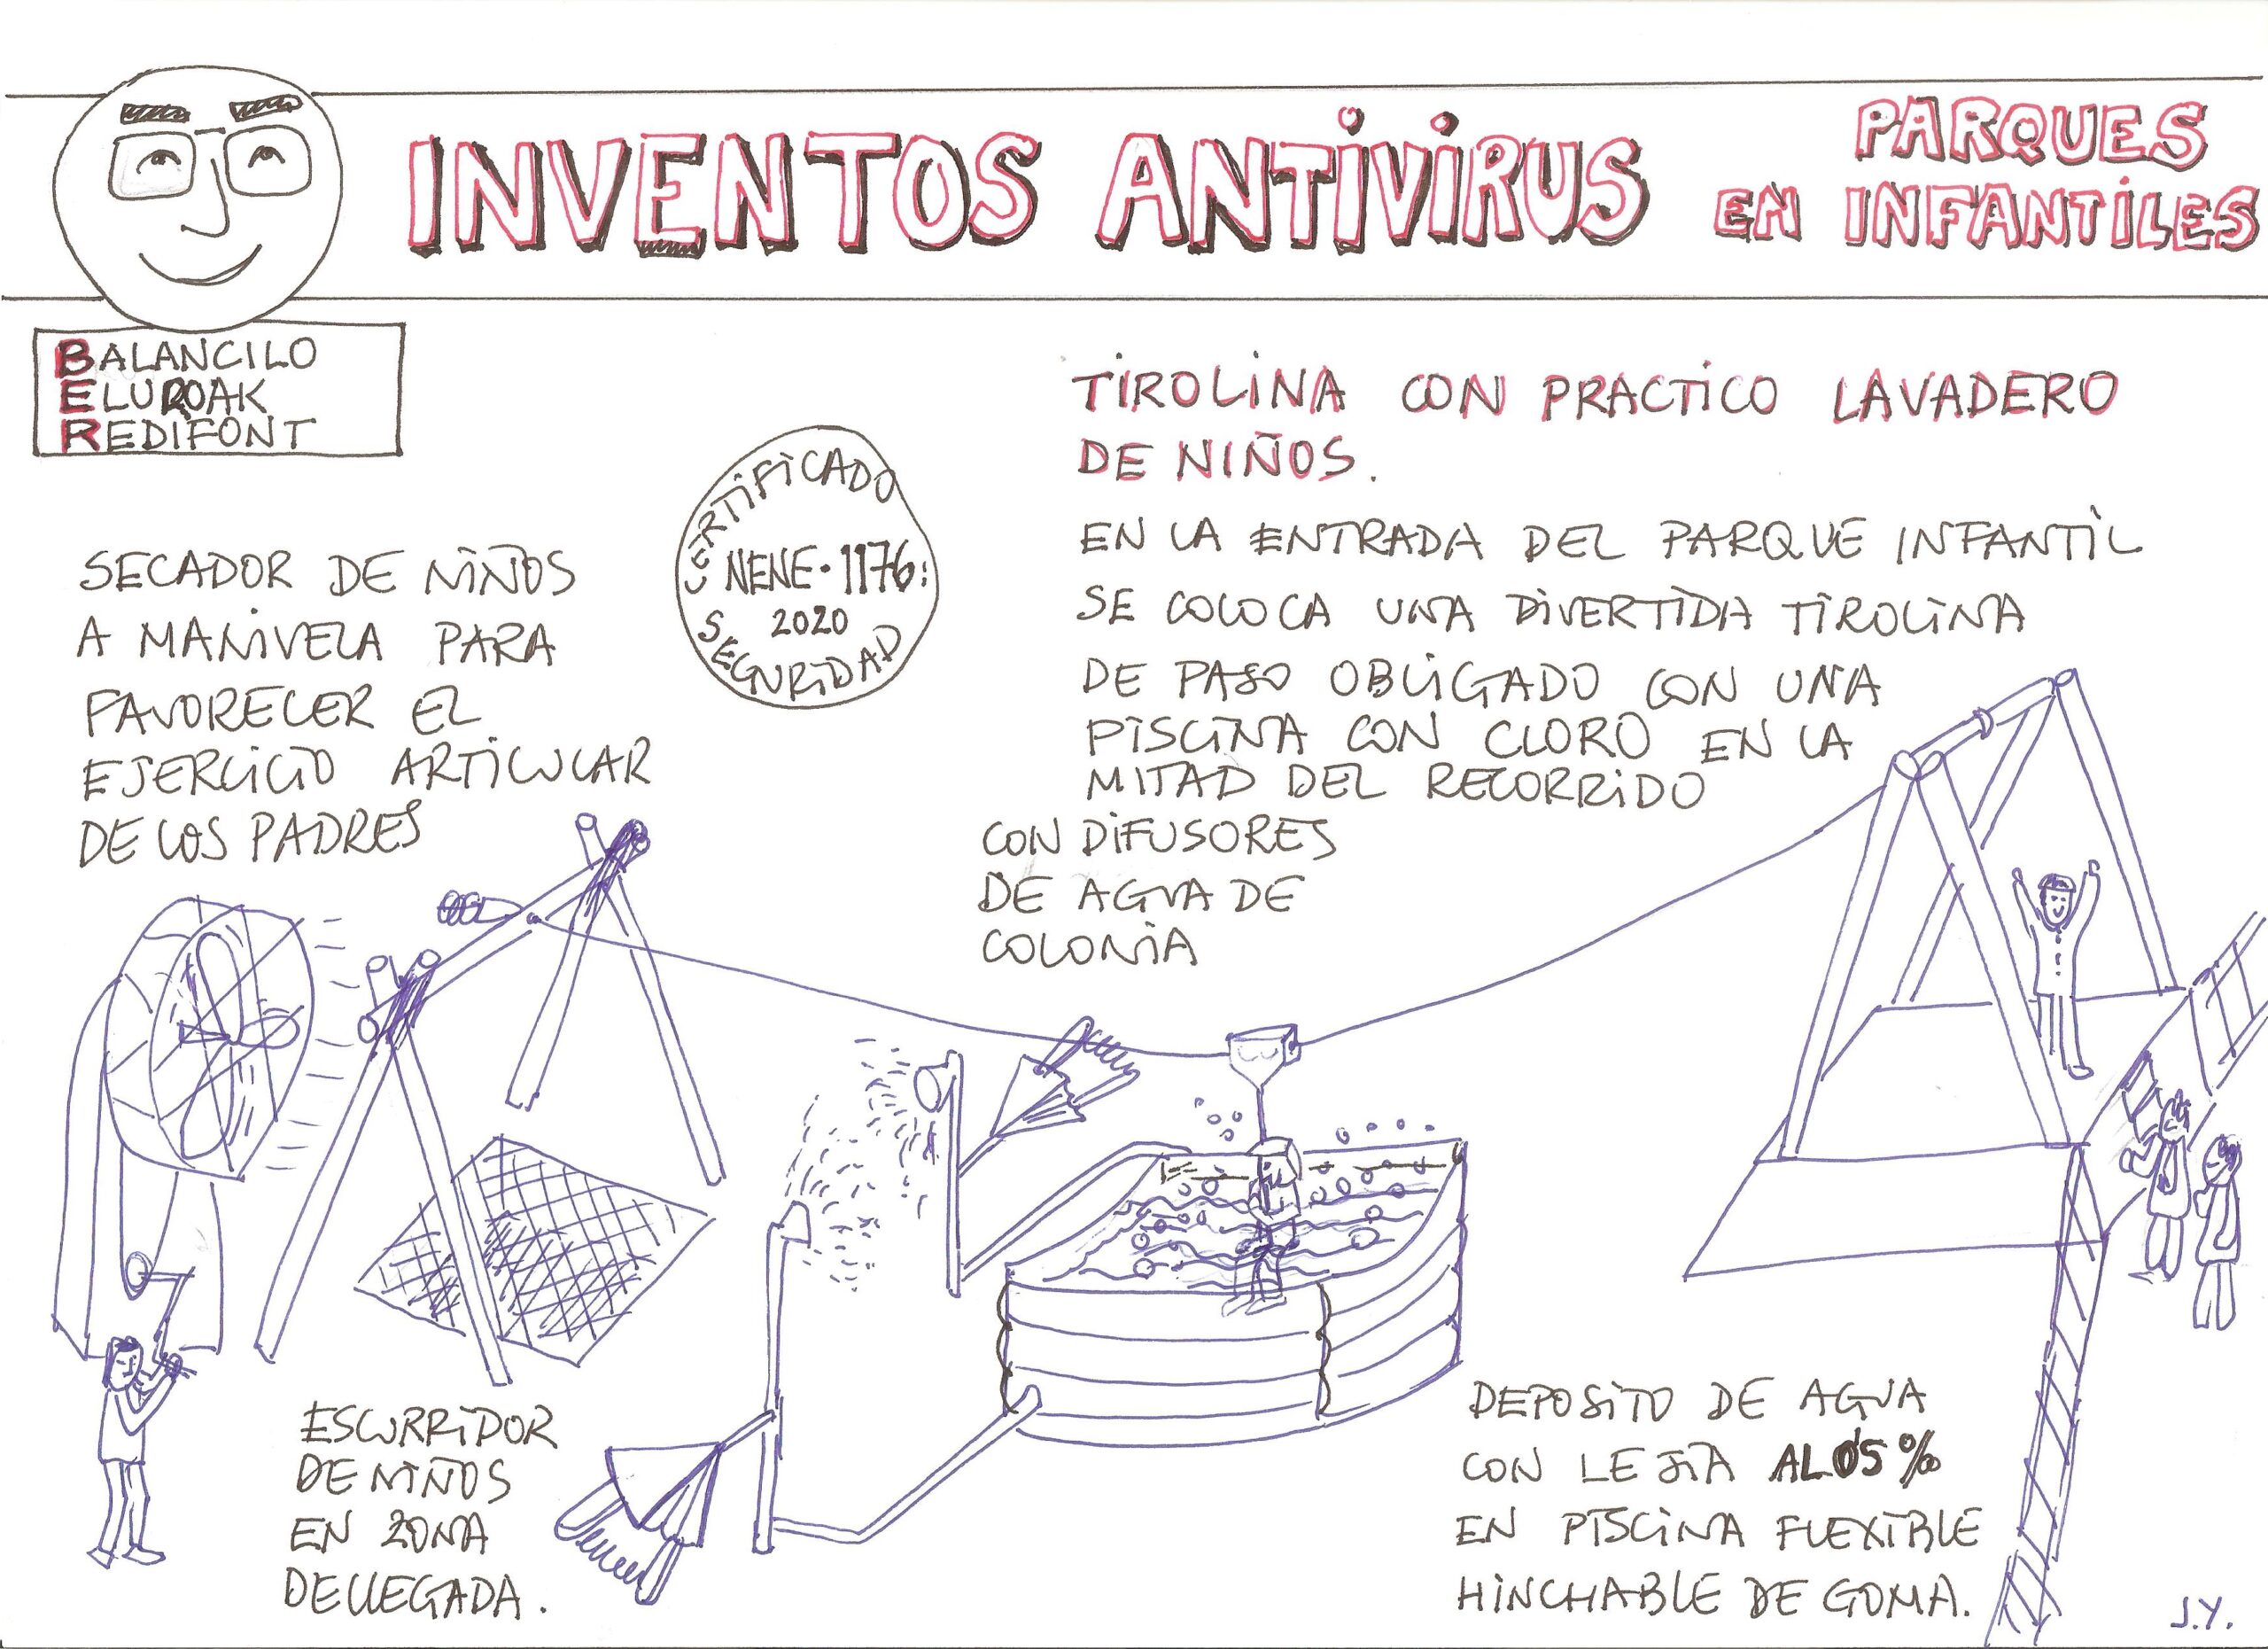 INVENTOS ANTIVIRUS
PARQUES
EN INFANTILES
BALANCILO
ELUROAK
REDIFONT
TIROLINA CON PRACTICO LAVADERO
DE NIÑOS.
CERTIFICADO
NENE · 1176:
2020
SEGURIDAD
EN LA ENTRADA DEL PARQUE INFANTIL
SE COLOCA UNA DIVERTIDA TIROLINA
DE PASO OBLIGADO CON UNA
PISCINA CON CLORO EN LA
MITAD DEL RECORRIDO
CON DIFUSORES
DE AGUA DE
COLONIA
SECADOR DE NIÑOS
A MANIVELA PARA
FAVORECER EL
EJERCICIO ARTICULAR
DE LOS PADRES
ESCURRIDOR
DE NIÑOS
EN ZONA
DE LLEGADA.
DEPOSITO DE AGUA
CON LEJIA AL 05 %
EN PISCINA FLEXIBLE
HINCHABLE DE GOMA.
J.Y.